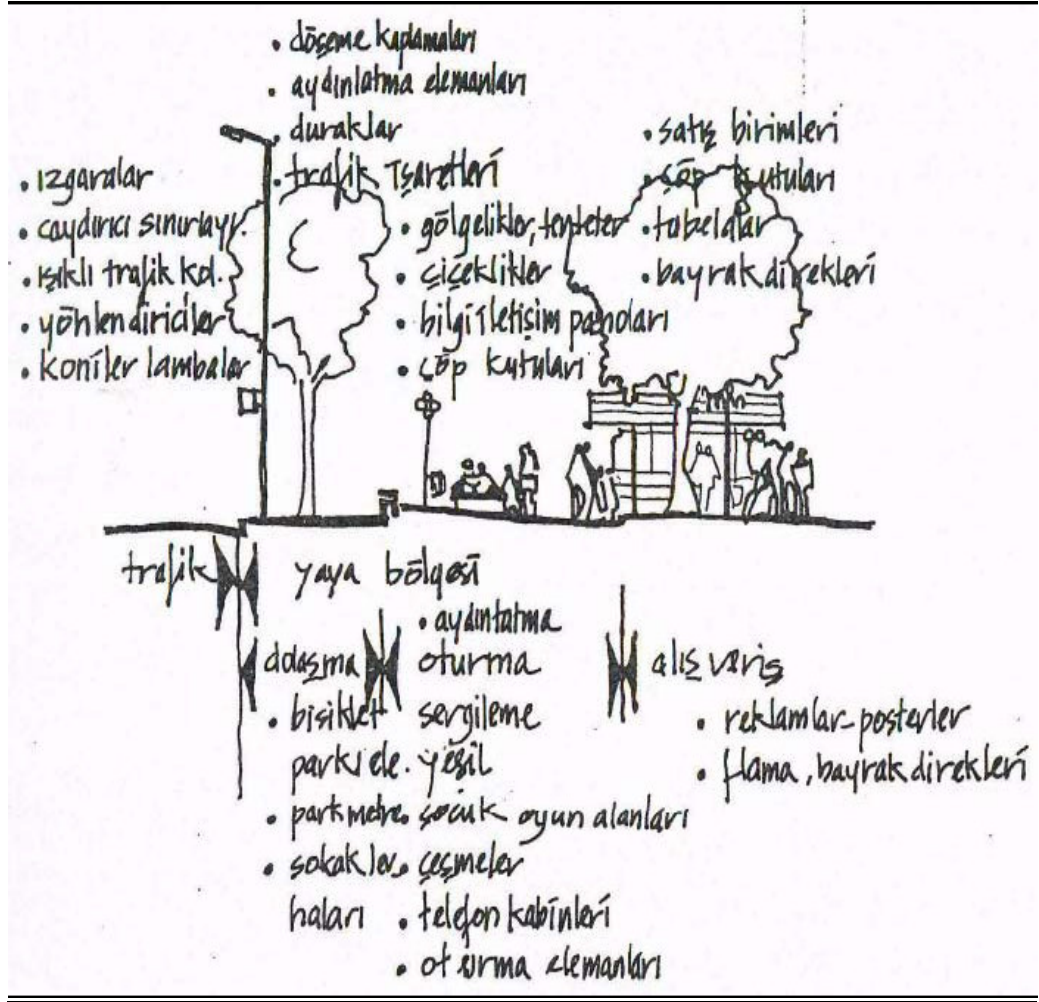 • döşeme kaplamaları
• aydınlatma elemanları
• duraklar
• trafik işaretleri
• ızgaralar
• caydırıcı sınırlayı.
• ışıklı trafik kol.
• yönlendiriciler
• koniler lambalar
• gölgelikler, tenteler
• çiçeklikler
• bilgi iletişim panoları
• çöp kutuları
• satış birimleri
• çöp kutuları
• tabelalar
• bayrak direkleri
trafik
yaya bölgesi
dolaşma
• bisiklet
parkı ele.
• parkmetre
• sokak lev
haları
• aydınlatma
oturma
sergileme
yeşil
• çocuk oyun alanları
• çeşmeler
• telefon kabinleri
• oturma elemanları
alış veriş
• reklamlar-posterler
• flama, bayrak direkleri